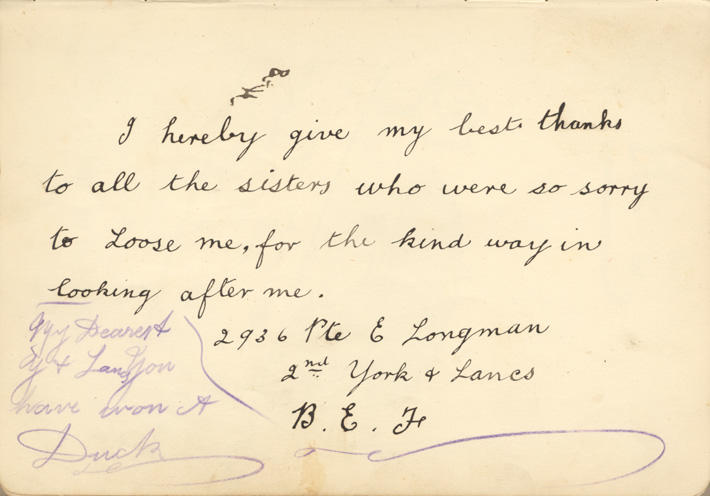 I hereby give my best thanks
to all the sisters who were so sorry
to Loose me, for the kind way in
looking after me.
2936 Pte E Longman
2nd York & Lancs
B. E. F
My Dearest
Y & Lancs You
have won A
Duck